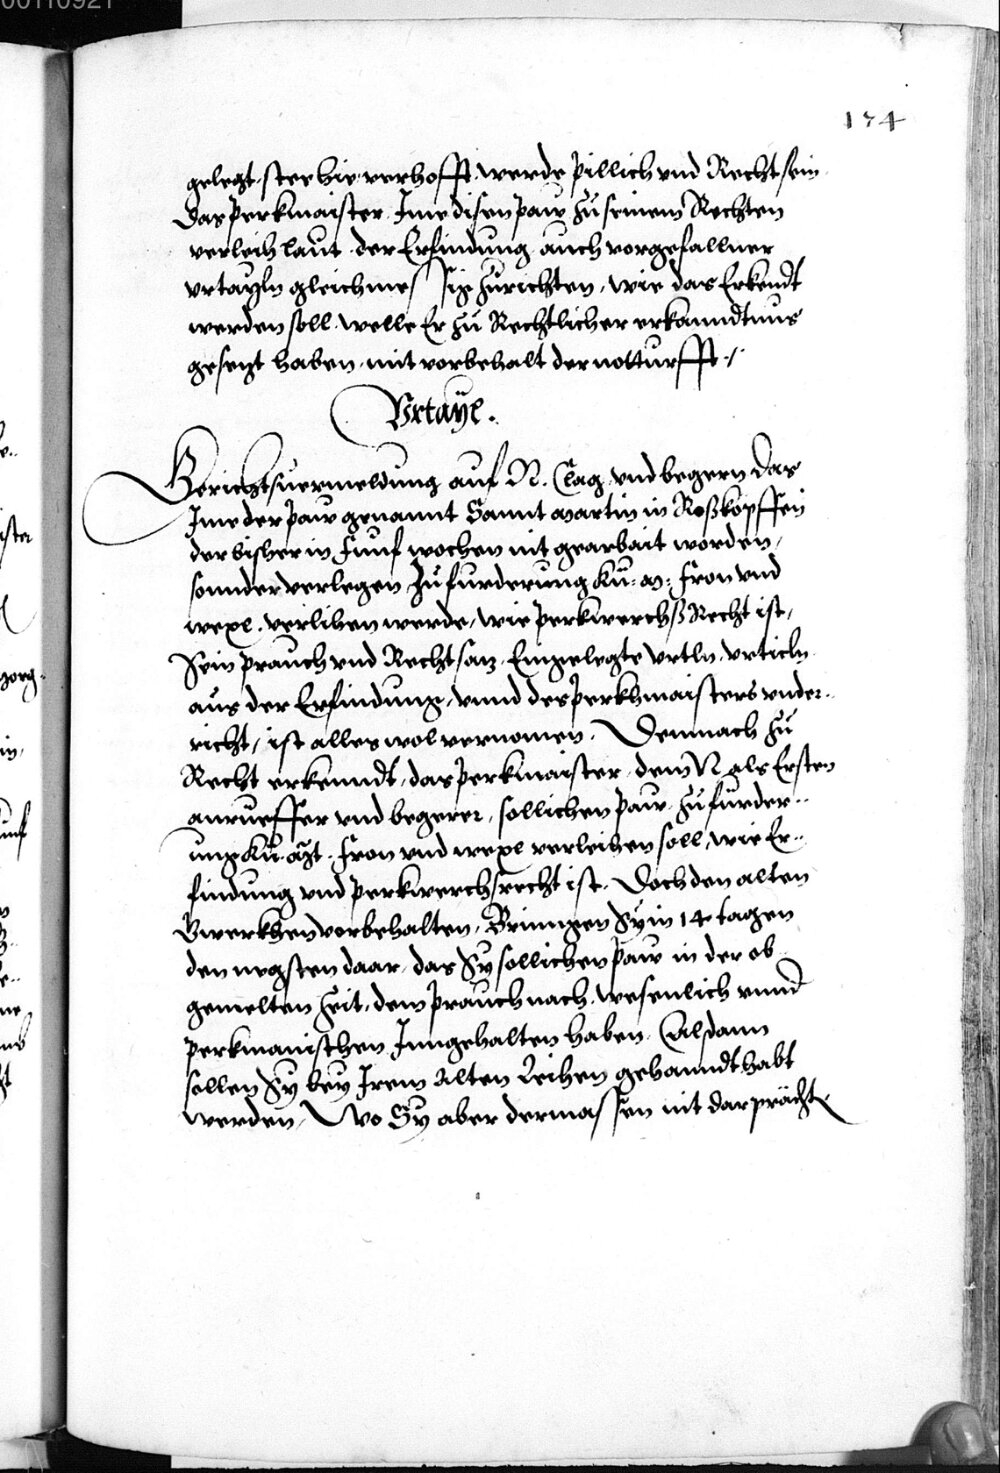 174
gelegt. stee hie verhofft werde pillich vnd Recht sein
Das Perkmaister Ime disen paw zu seinem Rechten
verleih laut der Erfindung auch vorgefallner
vrtayln gleichmes sig zurichten, wie das Erkendt
werden soll. welle Er zu Rechtlicher erkanndtnus
gesetzt haben. mit vorbehalt der notturfft ./.
Vrtayl.
Gerichtsuermeldung auf N. Clag vnd begern das
Ime der paw genannt Sannt Martin in Roßkopffen
der bisher in funf wochen nit gearbait worden,
sonnder verlegen zu furderung Kü: M: fron vnd
wexl. verlihen werde, wie perkwerchß Recht ist,
Sein prauch vnd Rechtsatz. Eingelegte vrtln. Articln
aus der Erfindung, vnnd des Perkhmaisters vnder..
richt, ist alles wol vernomen. Demnach zu
Recht erkenndt, das Perkmaister dem N. als Ersten
anrueffer vnd begerer, sollichen paw. zu fürder..
ung Kü. Mt. fron vnd wexl verleihen soll, wie Er..
findung vnd perkwerchsrecht ist. Doch den alten
Gwerkhen vorbehalten, Bringen Sy in 14 tagen
den negsten daar, das Sy sollichen paw in der ob..
gemelten Zeit, dem prauch nach wesenlich vnnd
perkmanischen Inngehalten haben. Alsdann
sollen Sy bey Irem Alten Leihen gehanndthabt
werden, Wo Sy aber dermassen nit darprächt